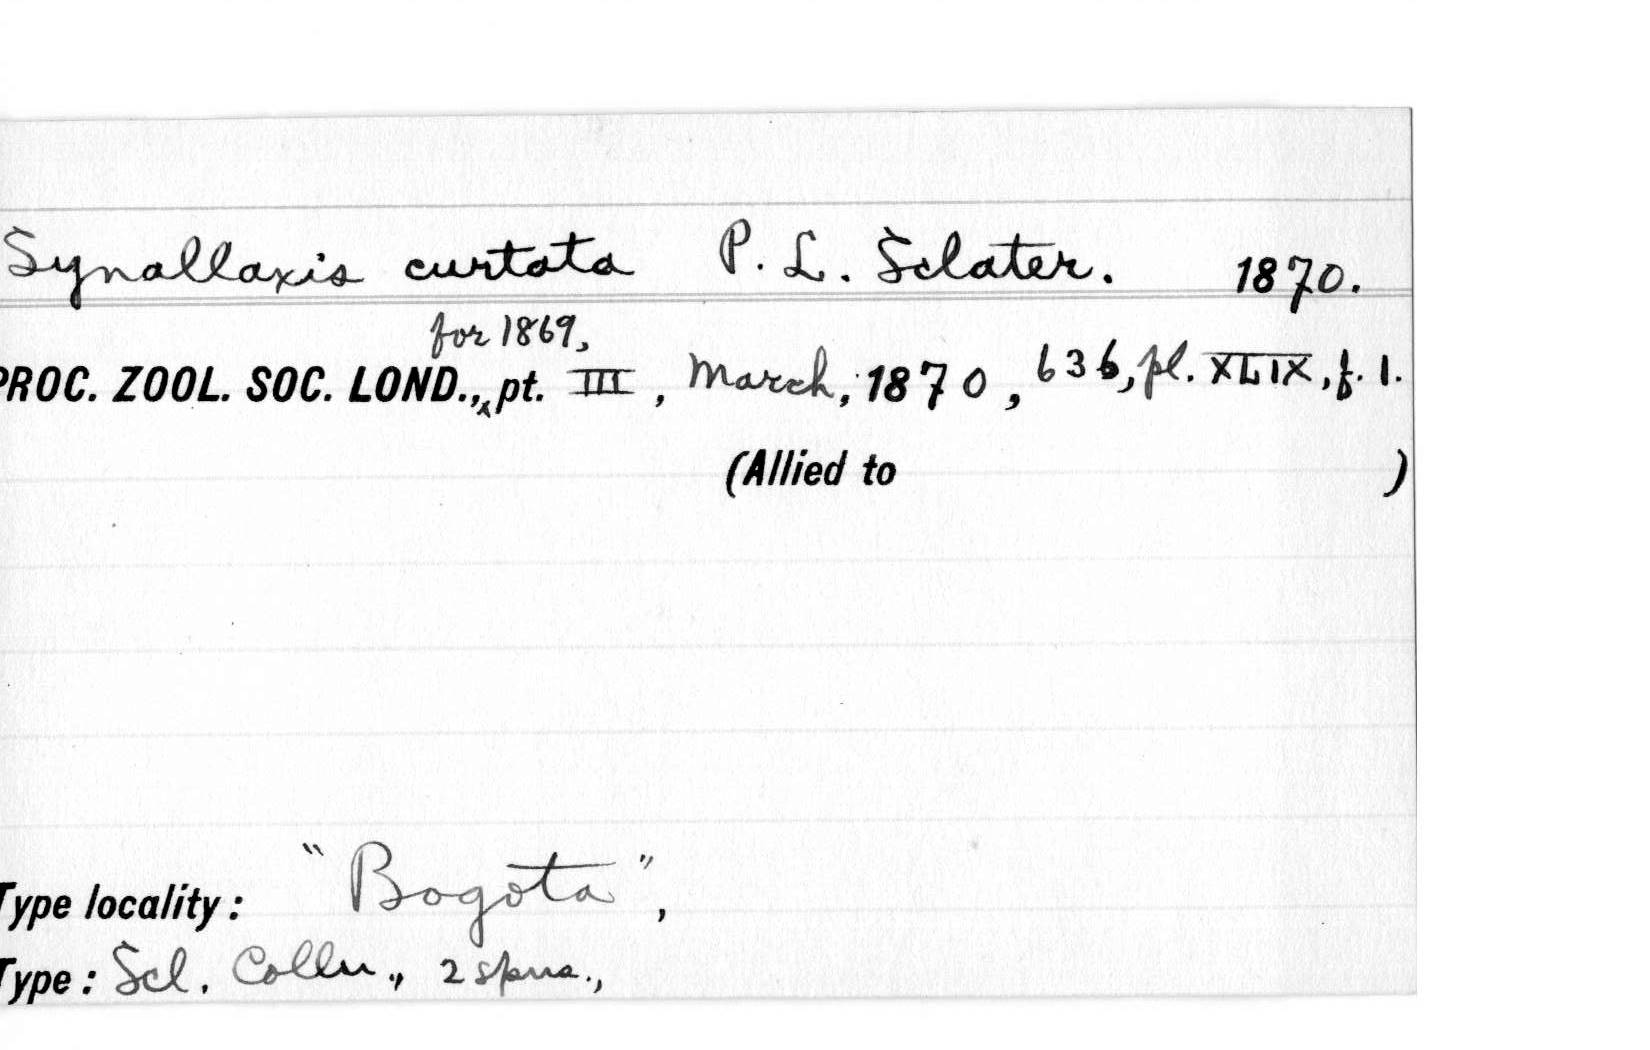 Synallaxis curtata P. L. Sclater. 1870.
for 1869,
PROC. ZOOL. SOC. LOND., pt. III, March, 1870, 636, pl. XLIX, f. 1.
(Allied to )
Type locality: "Bogota",
Type: Scl. Colln., 2 spns.,